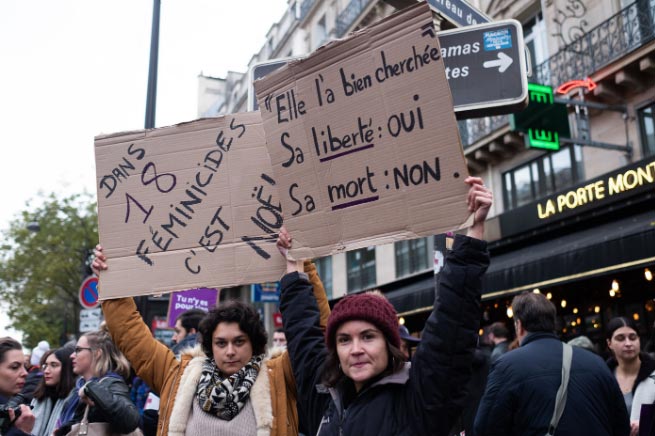 DANS
18
FÉMINICIDES
C'EST
NOËL"
"Elle l'a bien cherchée"
Sa liberté : OUI
Sa mort : NON.
amas
tes
LA PORTE MONT
Tu n'y es
pour rien